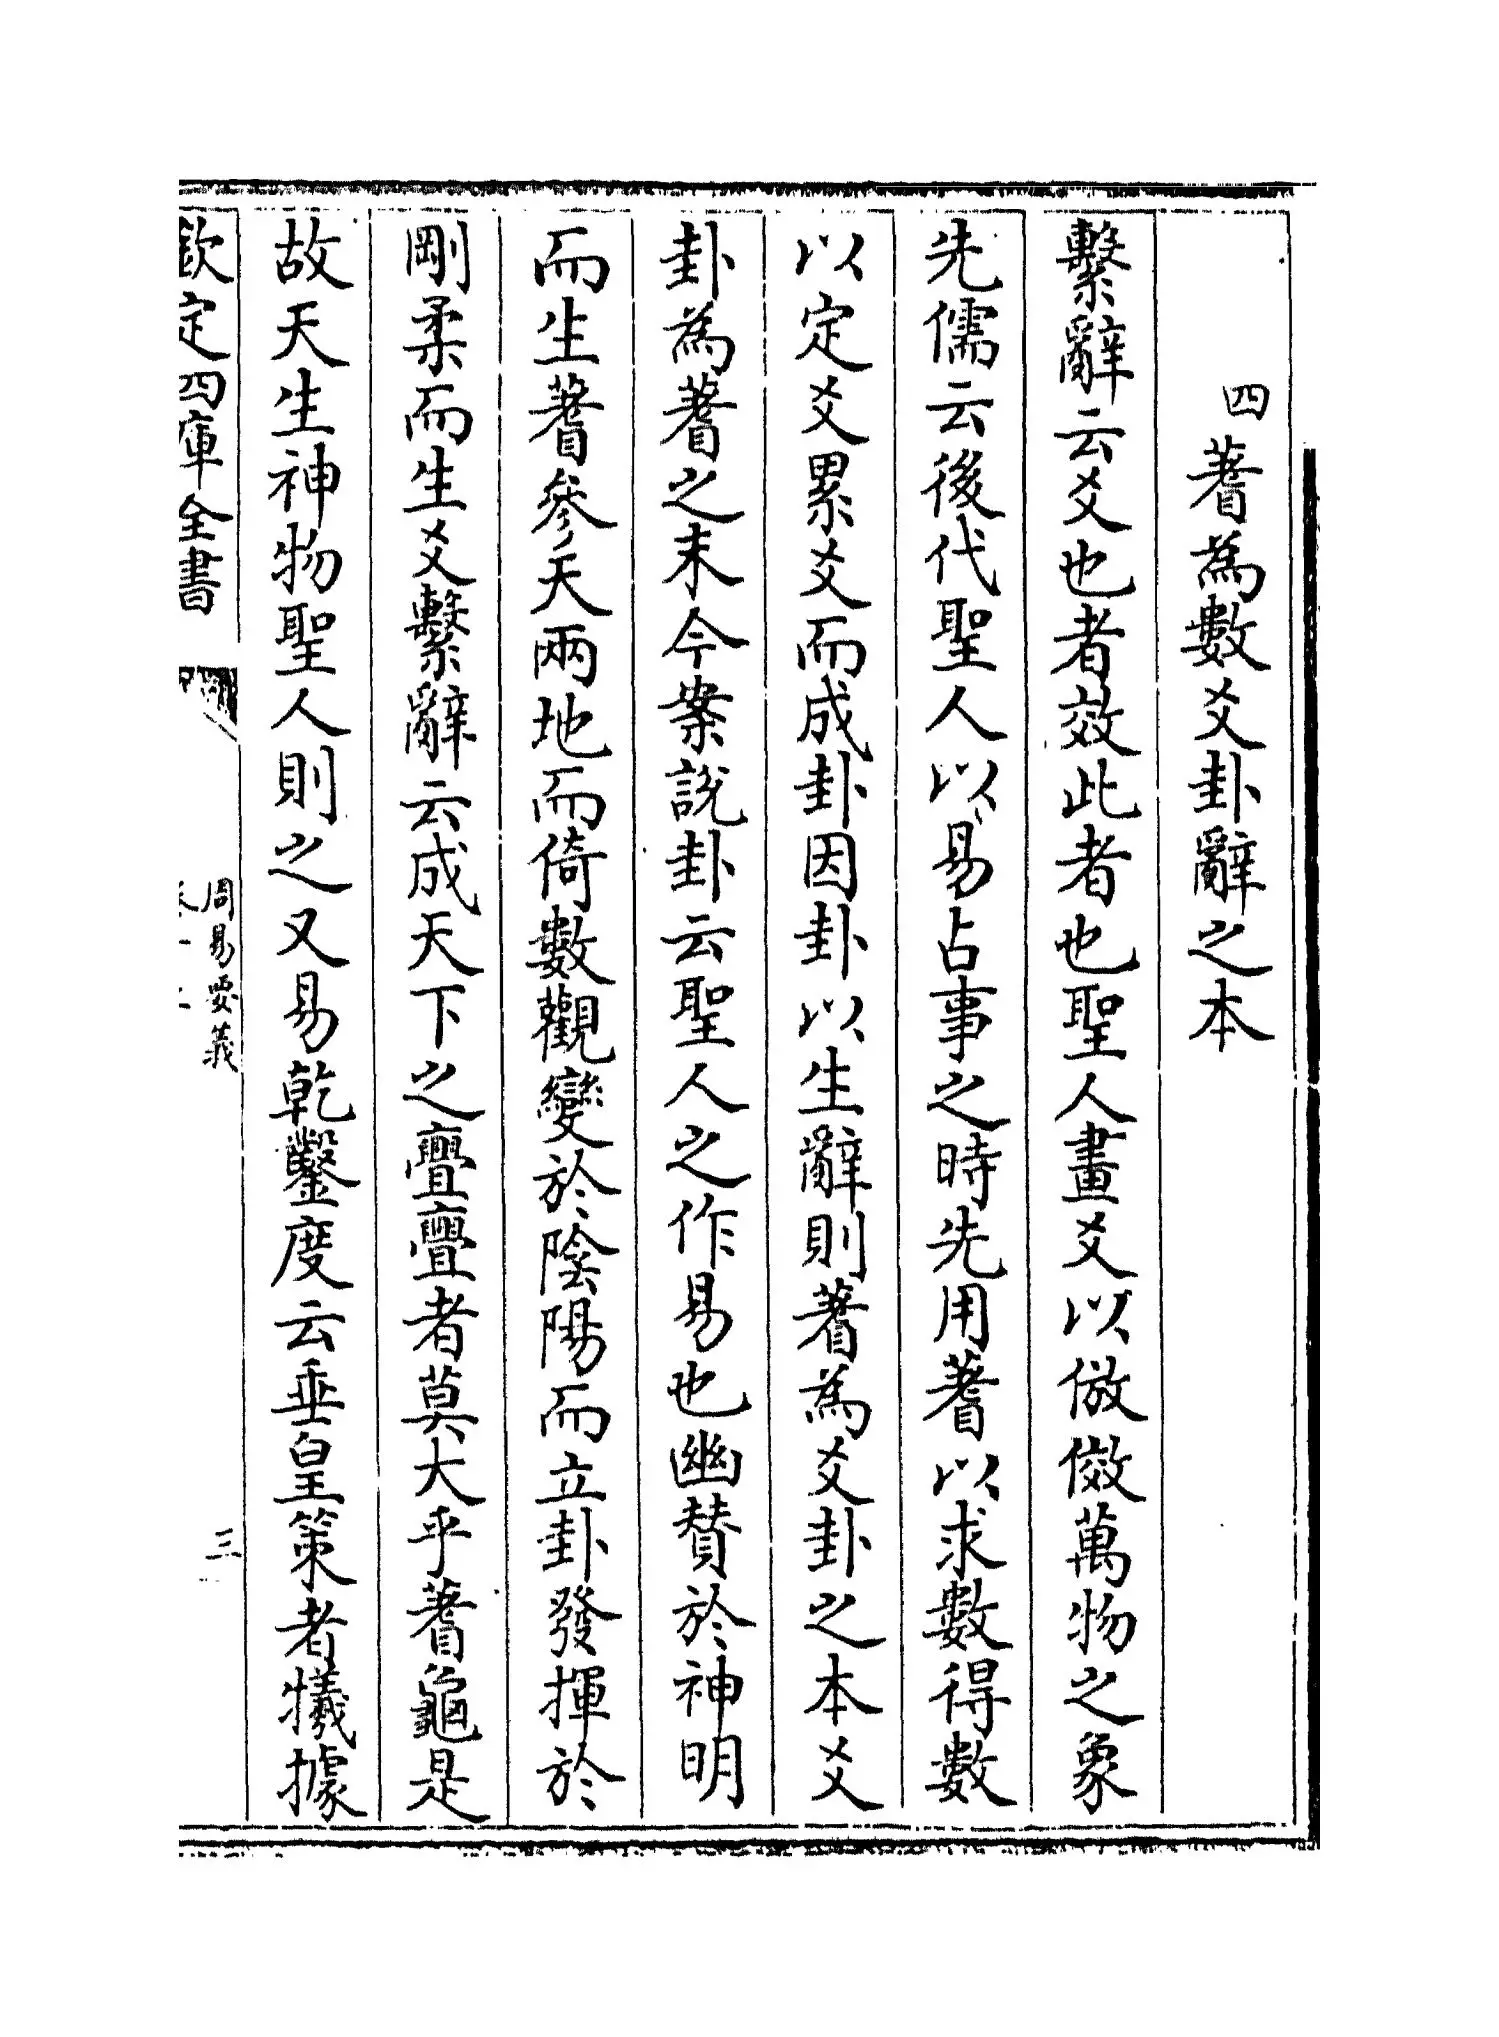 四蓍為數爻卦辭之本
繫辭云爻也者效此者也聖人畫爻以倣傚萬物之象
先儒云後代聖人以易占事之時先用蓍以求數得數
以定爻累爻而成卦因卦以生辭則蓍為爻卦之本爻
卦為蓍之末今案說卦云聖人之作易也幽贊於神明
而生蓍參天兩地而倚數觀變於陰陽而立卦發揮於
剛柔而生爻繫辭云成天下之亹亹者莫大乎蓍龜是
故天生神物聖人則之又易乾鑿度云垂皇策者犧據
欽定四庫全書
周易要義
三